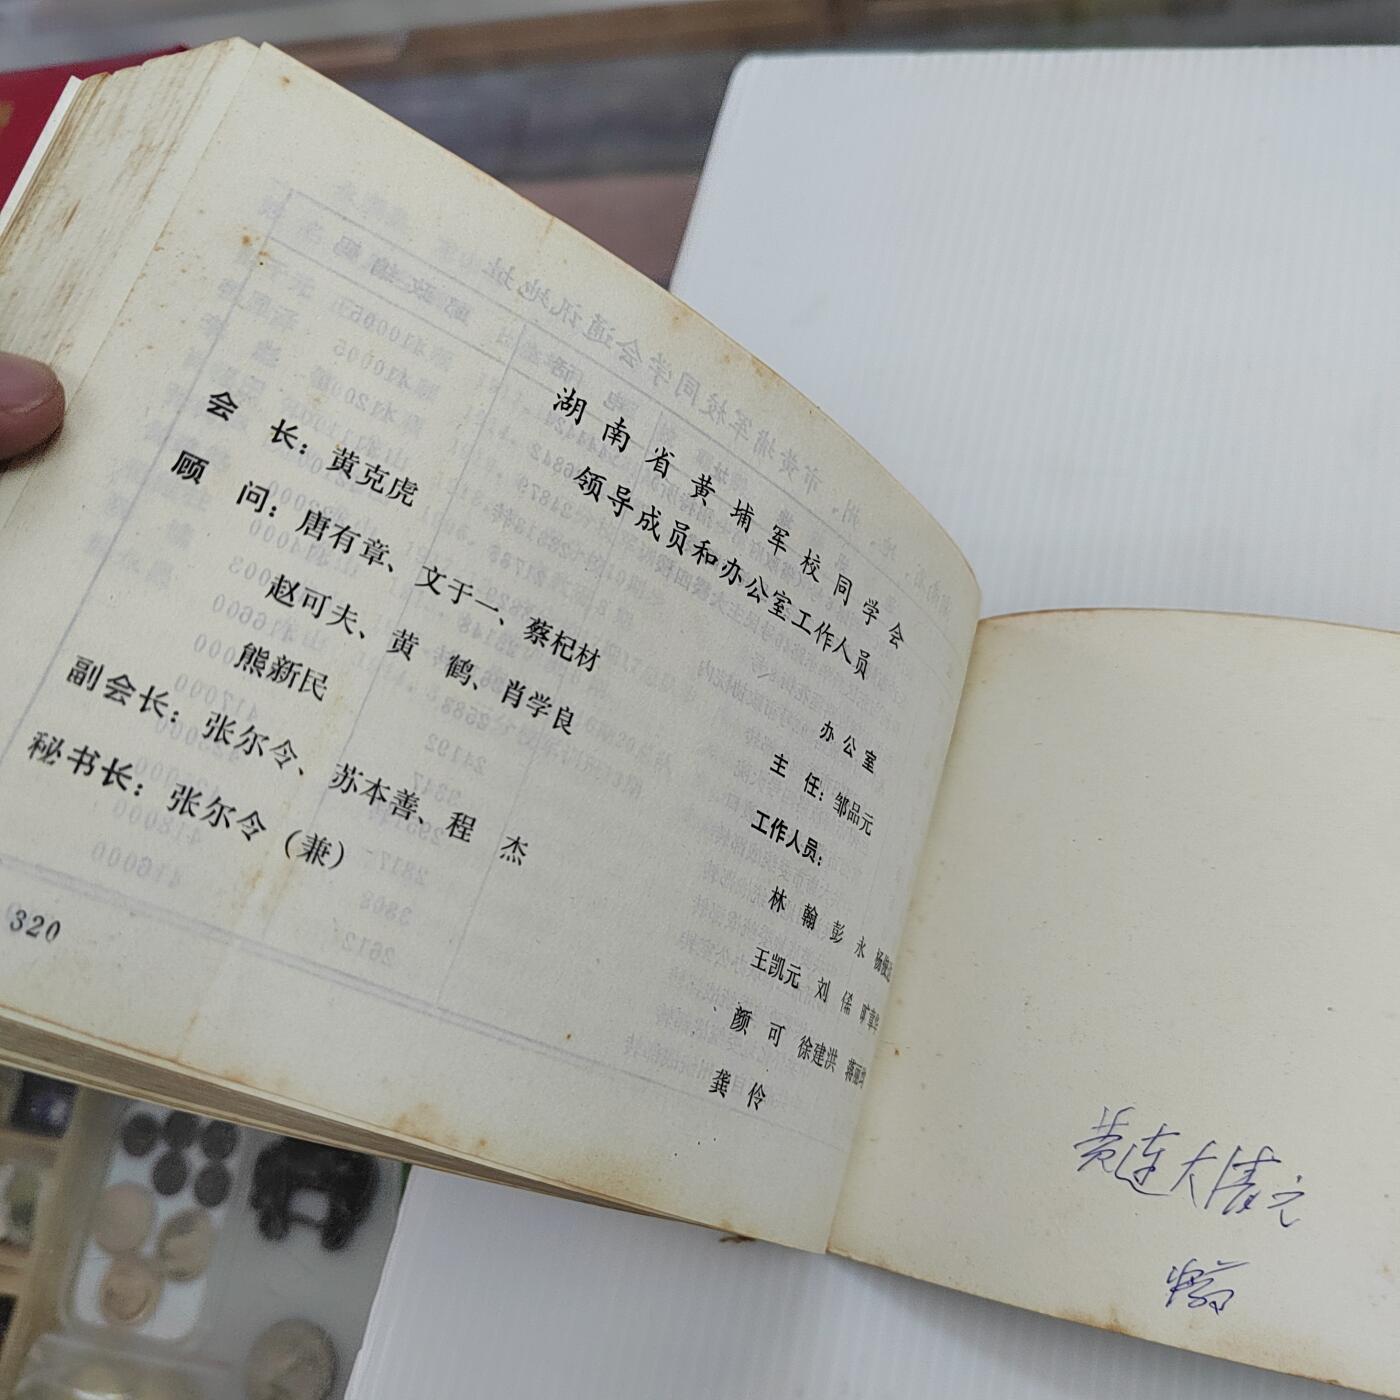 湖南省黄埔军校同学会
领导成员和办公室工作人员
会 长：黄克虎
顾 问：唐有章、文于一、蔡杞材
赵可夫、黄 鹤、肖学良
熊新民
副会长：张尔令、苏本善、程 杰
秘书长：张尔令（兼）
办公室
主 任：邹品元
工作人员：
林 翰 彭 永
王凯元 刘 俙
颜 可 徐建洪
龚 伶
320
黄连大清元